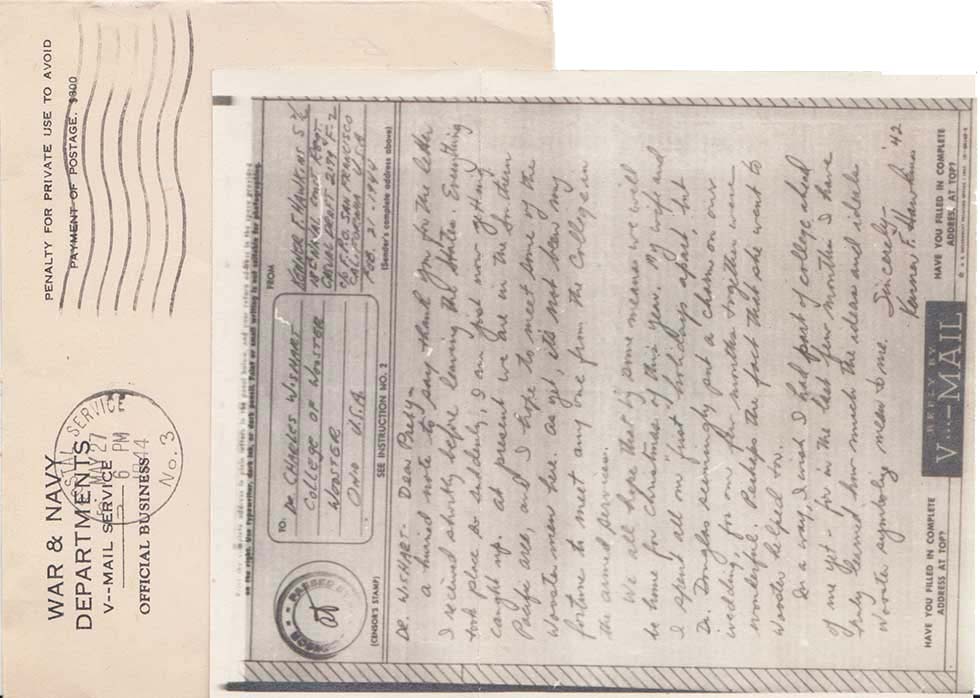 WAR & NAVY
DEPARTMENTS
V--MAIL SERVICE
OFFICIAL BUSINESS
PENALTY FOR PRIVATE USE TO AVOID
PAYMENT OF POSTAGE, $300
POSTAL SERVICE
MAY 27
6 PM
1944
No. 3
on the right. Use typewriter, dark ink, or dark pencil. Faint or small writing is not suitable for photographing.
TO:
DR CHARLES WISHART
COLLEGE OF WOOSTER
WOOSTER
OHIO U.S.A
FROM
KENNER F. HAWKINS S 2/c
18th NAVAL CONST REGT
NAVAL DRAFT 2194 F-2
c/o F.P.O. SAN FRANCISCO
CALIFORNIA U.S.A
FEB. 21-1944
(Sender's complete address above)
SEE INSTRUCTION NO. 2
PASSED
CENSOR
(CENSOR'S STAMP)
DR. WISHART - Dear Prexy -
a hurried note to say thank you for the letter
I received shortly before leaving the States. Everything
took place so suddenly, I am just now getting
caught up. At present we are in the Southern
Pacific area, and I hope to meet some of the
Wooster men here. As yet, it's not been my
fortune to meet any one from the College in
the armed services.
We all hope that by some means we will
be home for Christmas of this year. My wife and
I spent all our "just" holidays apart, but
Dr. Douglas seemingly put a charm on our
wedding, for our few months together were
wonderful. Perhaps the fact that she went to
Wooster helped too.
In a way, I wish I had part of college ahead
of me yet - for in the last few months I have
truly learned how much the ideas and ideals
Wooster symbolizes mean to me.
Sincerely -
Kenner F. Hawkins '42
HAVE YOU FILLED IN COMPLETE
ADDRESS AT TOP?
REPLY BY
V---MAIL
HAVE YOU FILLED IN COMPLETE
ADDRESS AT TOP?